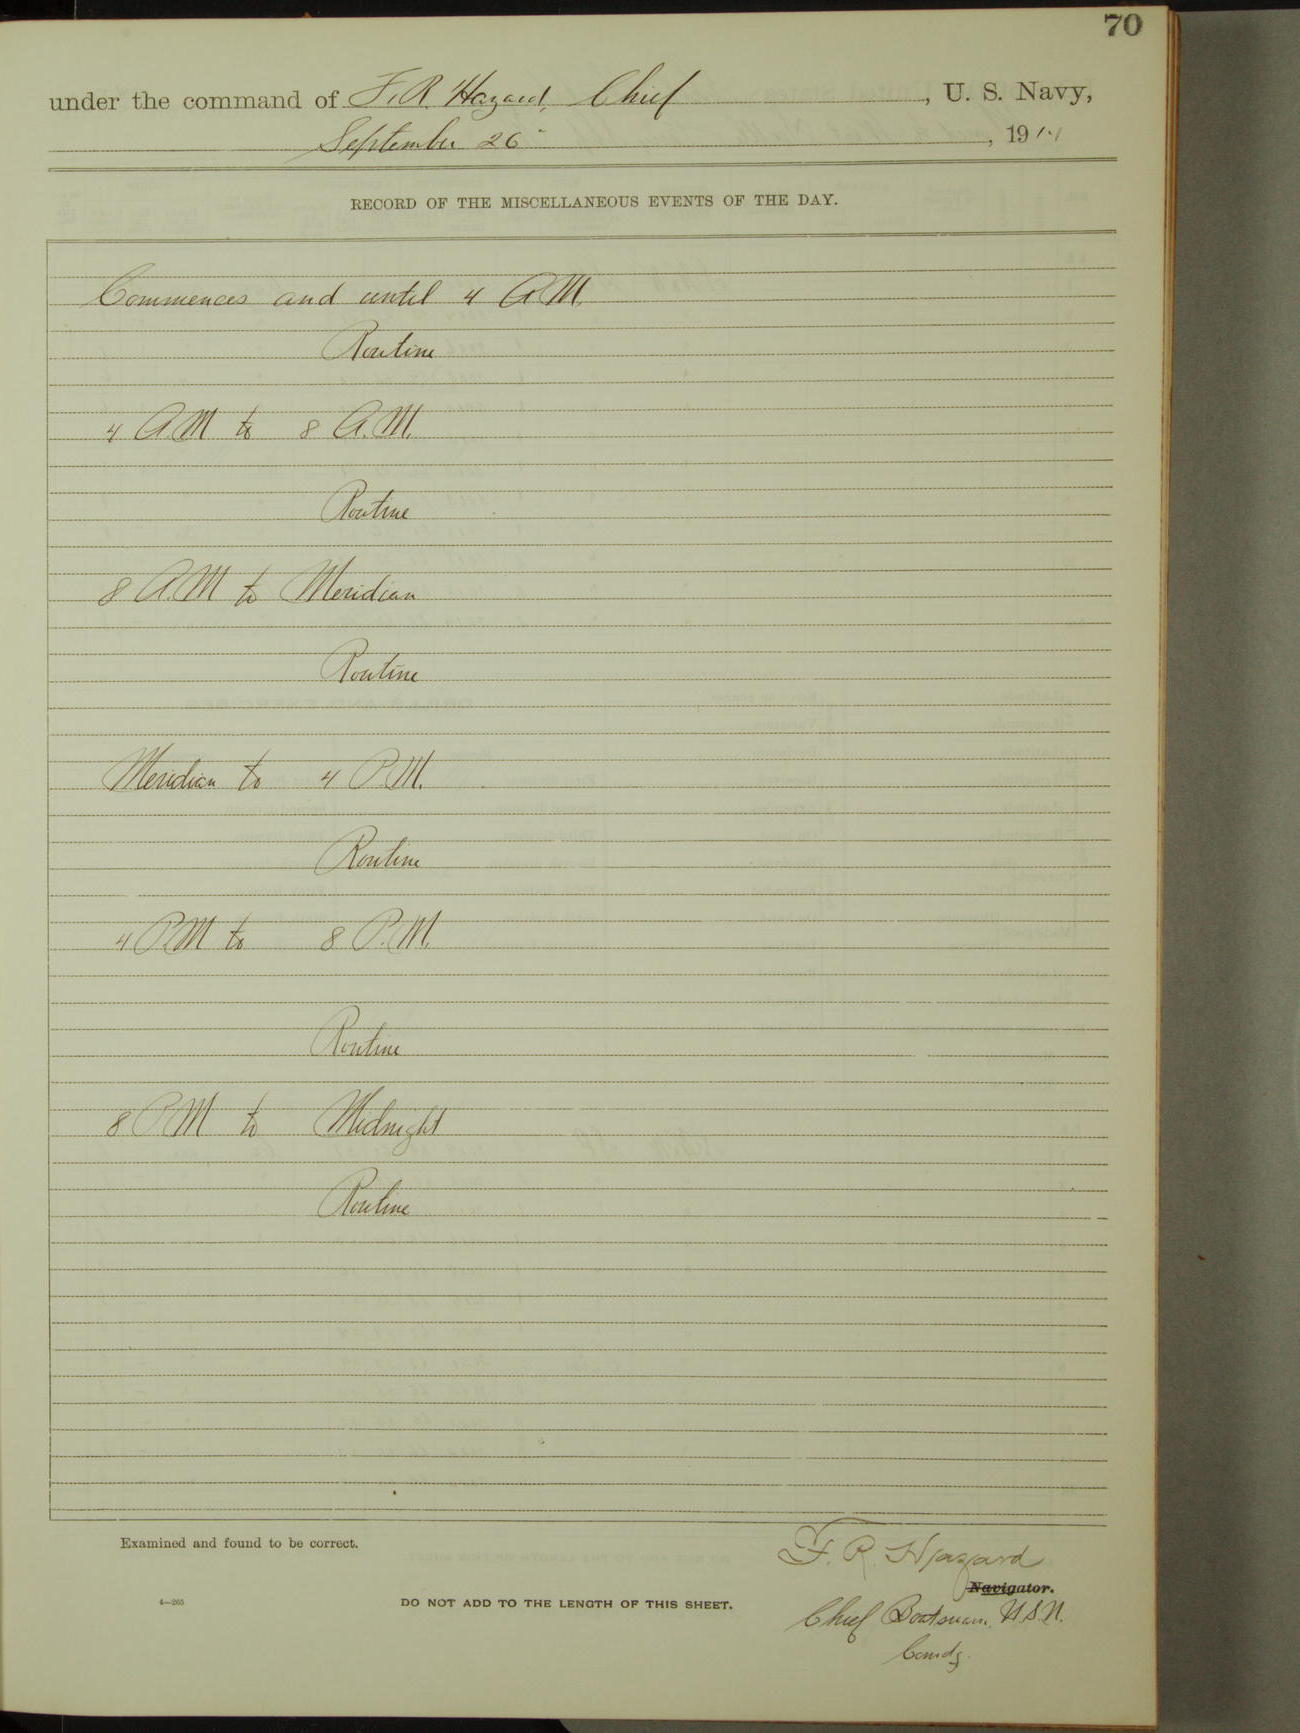 70
under the command of F. R. Hazard, Chief, U. S. Navy,
September 26, 19
RECORD OF THE MISCELLANEOUS EVENTS OF THE DAY.
Commences and until 4 A.M.
Routine
4 A.M to 8 A.M.
Routine
8 A.M to Meridian
Routine
Meridian to 4 P.M.
Routine
4 P.M to 8 P.M.
Routine
8 P.M to Midnight
Routine
Examined and found to be correct.
F. R. Hazard
Navigator.
4—265
DO NOT ADD TO THE LENGTH OF THIS SHEET.
Chief Boatswain, U.S.N.
Comdg.